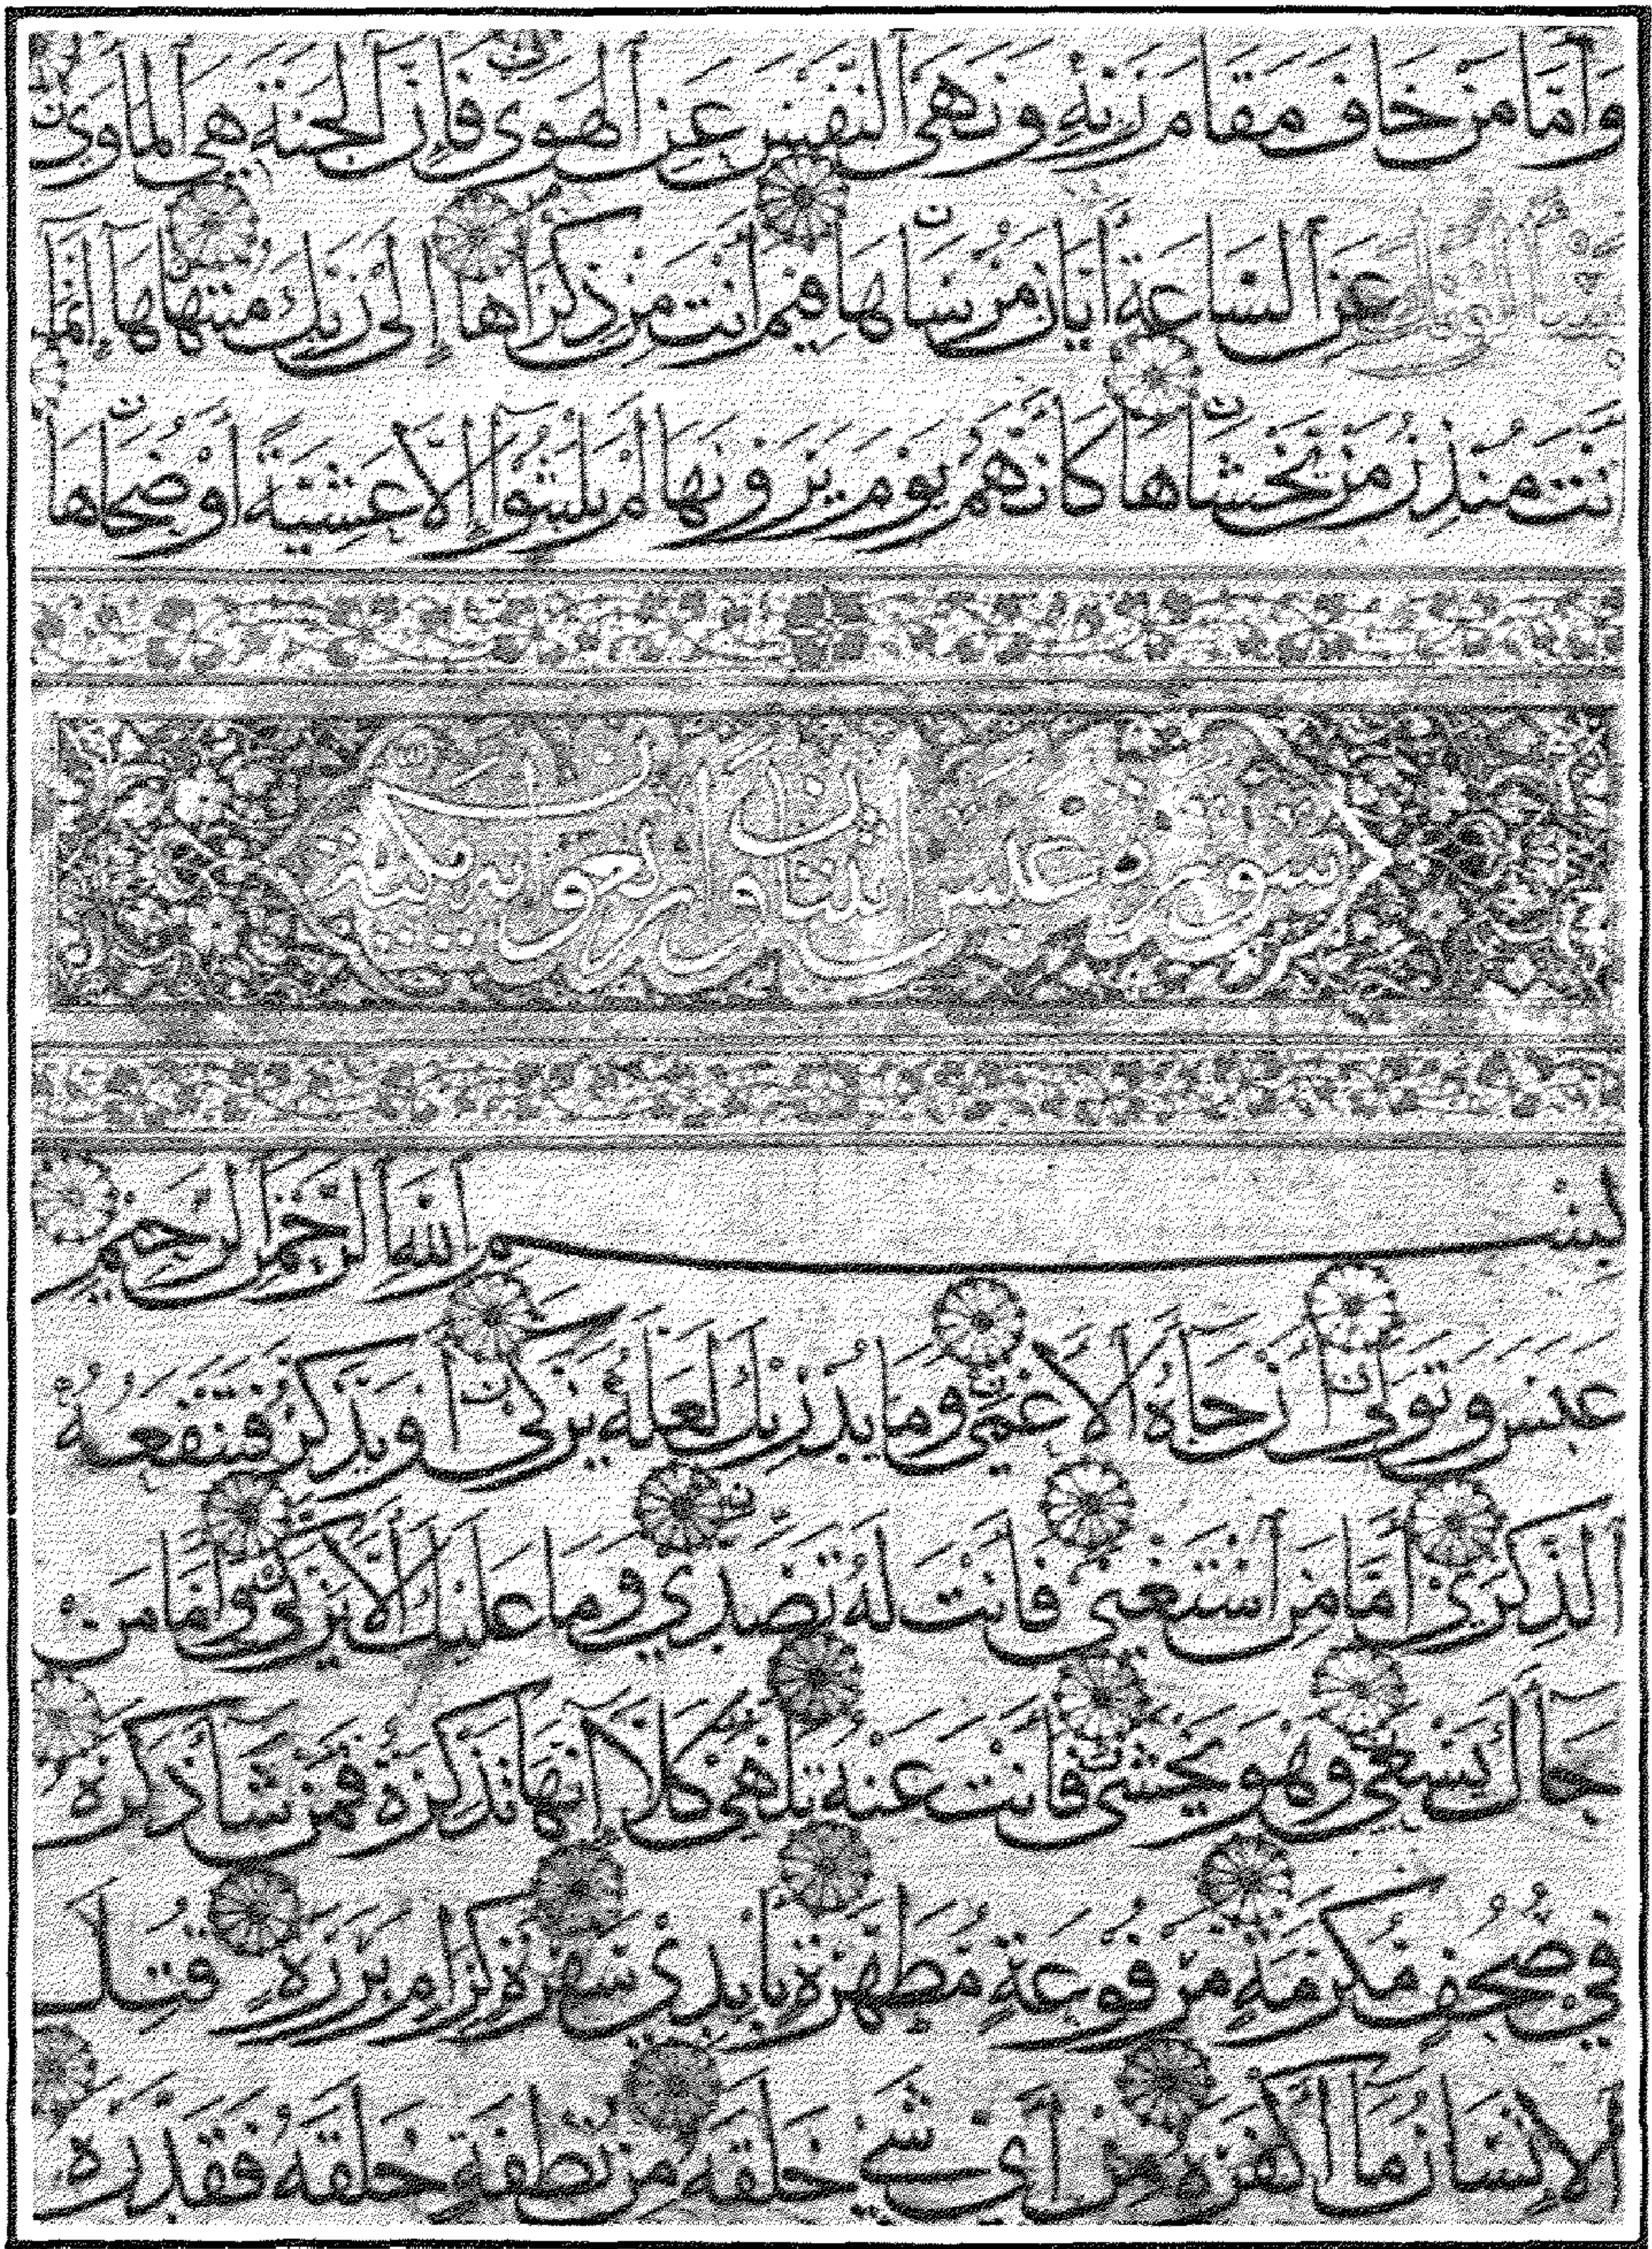 وَأَمَّا مَنْ خَافَ مَقَامَ رَبِّهِ وَنَهَى ٱلنَّفْسَ عَنِ ٱلْهَوَى فَإِنَّ ٱلْجَنَّةَ هِيَ ٱلْمَأْوَى
عَنِ ٱلسَّاعَةِ أَيَّانَ مُرْسَاهَا فِيمَ أَنْتَ مِنْ ذِكْرَاهَا إِلَى رَبِّكَ مُنْتَهَاهَا إِنَّمَا
أَنْتَ مُنْذِرُ مَنْ يَخْشَاهَا كَأَنَّهُمْ يَوْمَ يَرَوْنَهَا لَمْ يَلْبَثُوا إِلَّا عَشِيَّةً أَوْ ضُحَاهَا
سورة عبس اثنتان واربعون اية مكية
بِسْمِ ٱللَّهِ ٱلرَّحْمَنِ ٱلرَّحِيمِ
عَبَسَ وَتَوَلَّى أَنْ جَاءَهُ ٱلْأَعْمَى وَمَا يُدْرِيكَ لَعَلَّهُ يَزَّكَّى أَوْ يَذَّكَّرُ فَتَنْفَعَهُ
ٱلذِّكْرَى أَمَّا مَنِ ٱسْتَغْنَى فَأَنْتَ لَهُ تَصَدَّى وَمَا عَلَيْكَ أَلَّا يَزَّكَّى وَأَمَّا مَنْ
جَاءَكَ يَسْعَى وَهُوَ يَخْشَى فَأَنْتَ عَنْهُ تَلَهَّى كَلَّا إِنَّهَا تَذْكِرَةٌ فَمَنْ شَاءَ ذَكَرَهُ
فِي صُحُفٍ مُكَرَّمَةٍ مَرْفُوعَةٍ مُطَهَّرَةٍ بِأَيْدِي سَفَرَةٍ كِرَامٍ بَرَرَةٍ قُتِلَ
ٱلْإِنْسَانُ مَا أَكْفَرَهُ مِنْ أَيِّ شَيْءٍ خَلَقَهُ مِنْ نُطْفَةٍ خَلَقَهُ فَقَدَّرَهُ